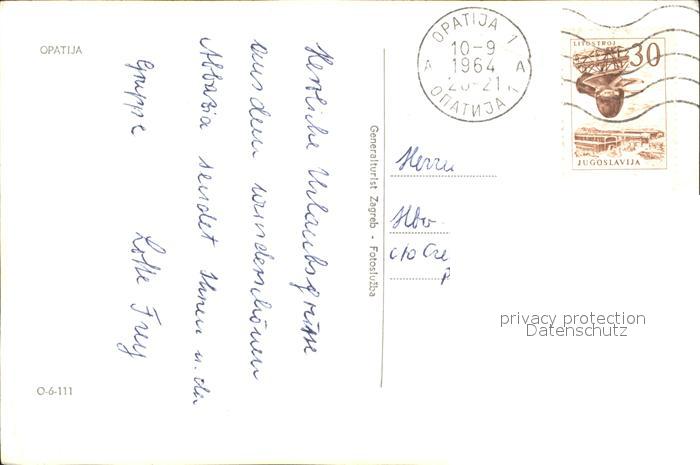 OPATIJA
Herzliche Urlaubsgrüße
aus dem wunderschönen
Abbazia sendet Ihnen u. der
Gruppe Lotte Frey
O-6-111
Generalturist Zagreb - Fotoslužba
OPATIJA 1
10-9
1964
20-21
A A
ОПАТИЈА 1
LITOSTROJ
30
JUGOSLAVIJA
Herrn
c/o
privacy protection
Datenschutz